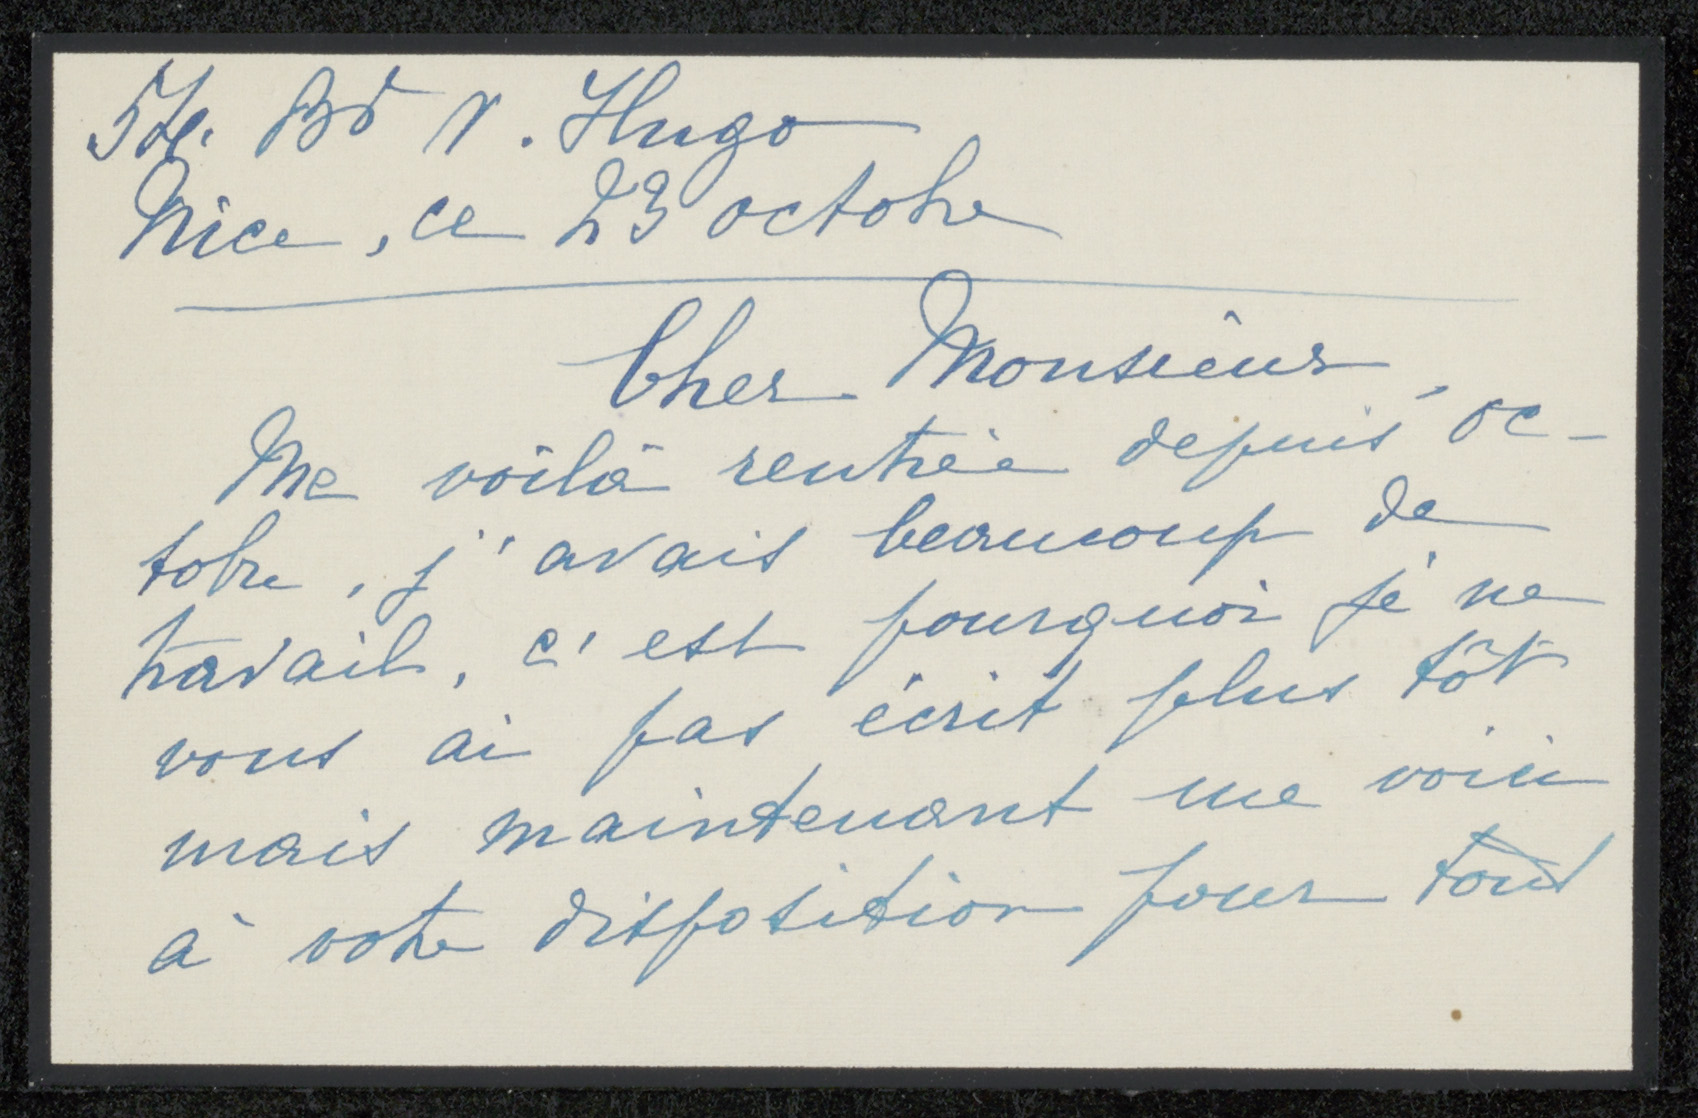 54. Bd V. Hugo
Nice, ce 23 octobre
Cher Monsieur,
Me voilà rentrée depuis oc-
tobre, j'avais beaucoup de
travail, c'est pourquoi je ne
vous ai pas écrit plus tôt
mais maintenant me voici
à votre disposition pour tout